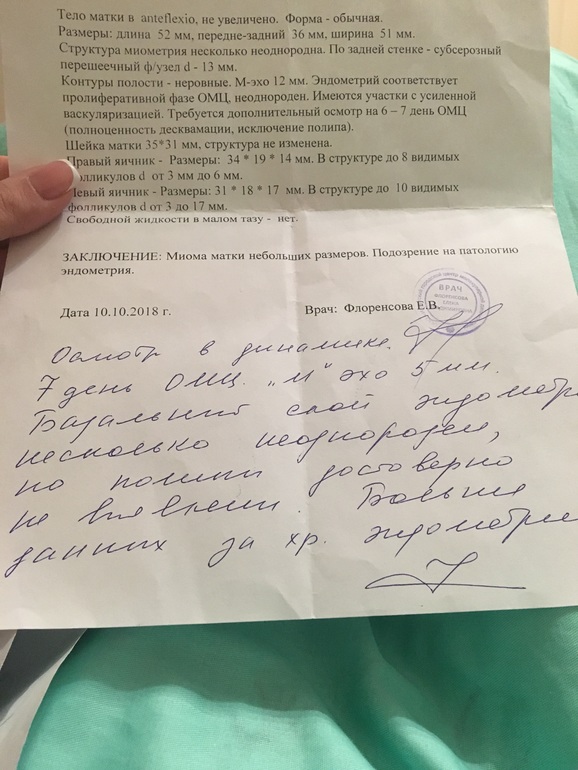 Тело матки в anteflexio, не увеличено. Форма - обычная.
Размеры: длина 52 мм, передне-задний 36 мм, ширина 51 мм.
Структура миометрия несколько неоднородна. По задней стенке - субсерозный
перешеечный ф/узел d - 13 мм.
Контуры полости - неровные. М-эхо 12 мм. Эндометрий соответствует
пролиферативной фазе ОМЦ, неоднороден. Имеются участки с усиленной
васкуляризацией. Требуется дополнительный осмотр на 6 – 7 день ОМЦ
(полноценность десквамации, исключение полипа).
Шейка матки 35*31 мм, структура не изменена.
Правый яичник - Размеры: 34 * 19 * 14 мм. В структуре до 8 видимых
фолликулов d от 3 мм до 6 мм.
Левый яичник - Размеры: 31 * 18 * 17 мм. В структуре до 10 видимых
фолликулов d от 3 до 17 мм.
Свободной жидкости в малом тазу - нет.
ЗАКЛЮЧЕНИЕ: Миома матки небольших размеров. Подозрение на патологию
эндометрия.
Дата 10.10.2018 г. Врач: Флоренсова Е.В.
ВРАЧ
Осмотр в динамике.
7 день ОМЦ. „М" эхо 5 мм.
Базальный слой эндометри
несколько неоднороден,
но полипы достоверно
не выявлены. Больше
данных за хр. эндометри